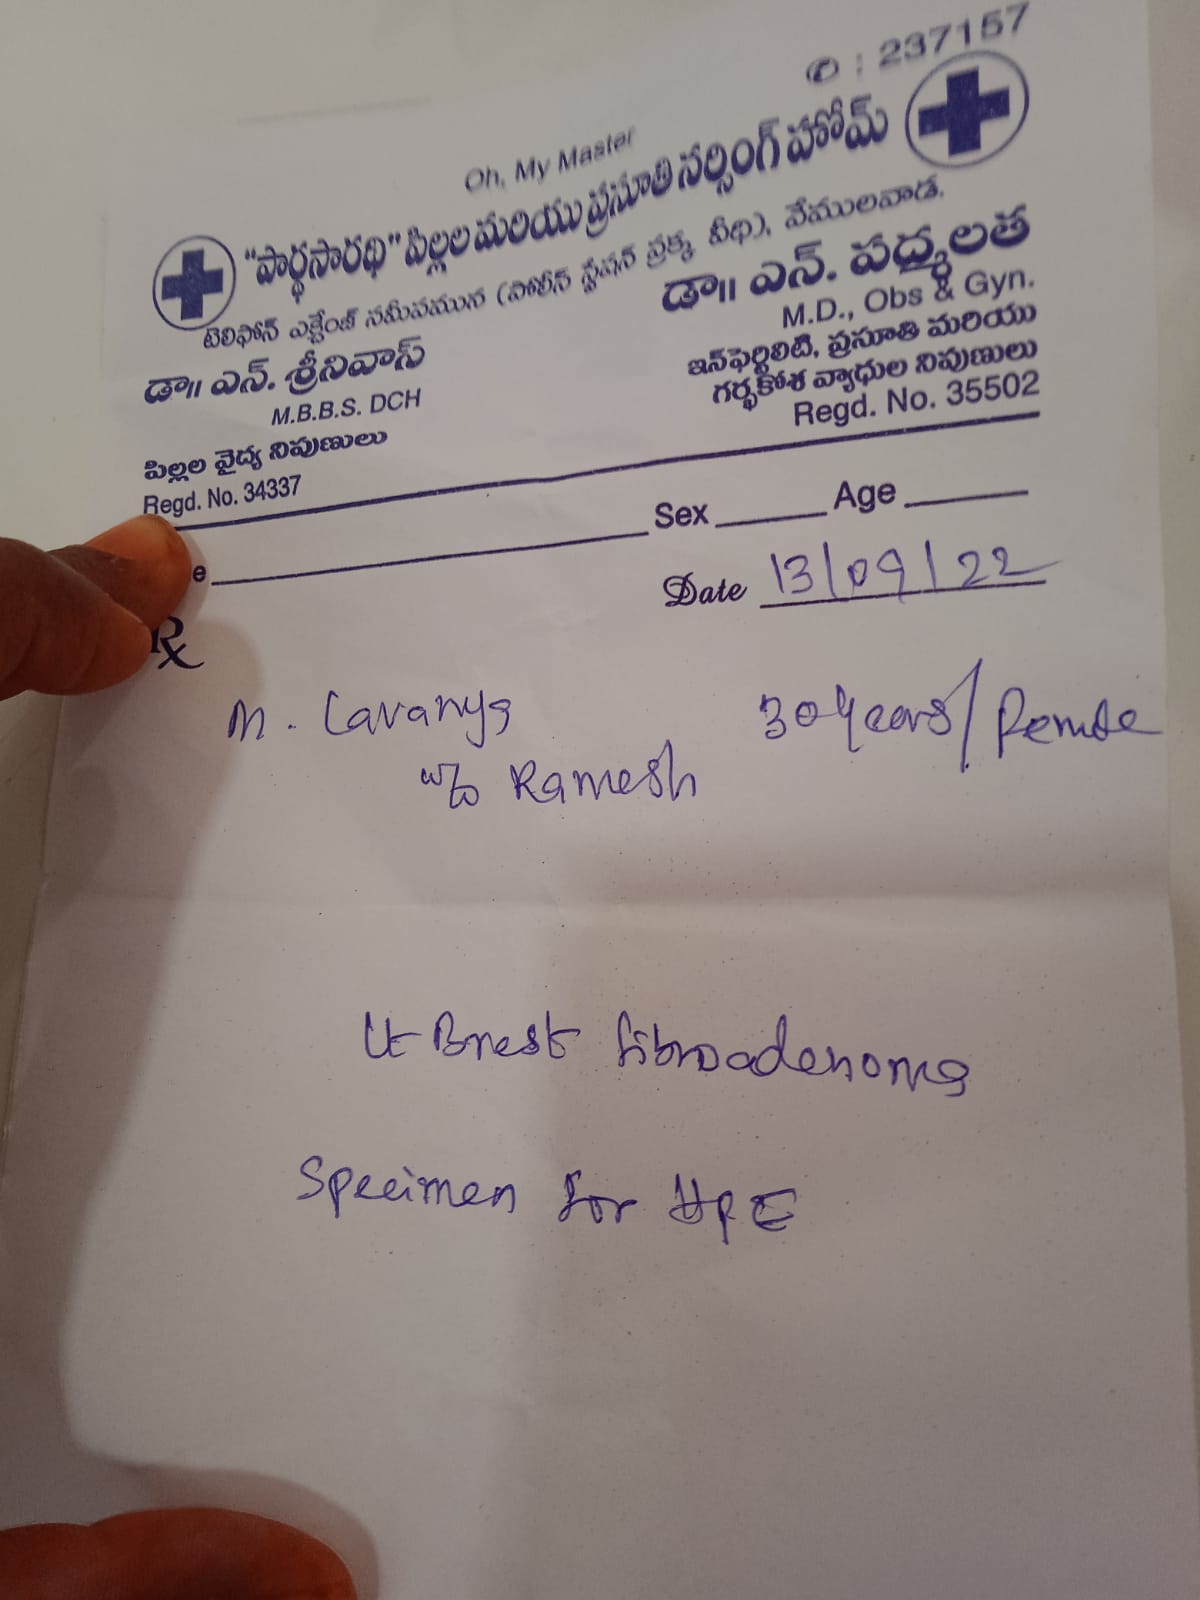 ✆ : 237157
Oh, My Master
"పార్థసారథి" పిల్లల మరియు ప్రసూతి నర్సింగ్ హోమ్
టెలిఫోన్ ఎక్చేంజ్ సమీపమున (పోలీస్ స్టేషన్ ప్రక్క వీధి), వేములవాడ.
డా॥ ఎన్. శ్రీనివాస్
M.B.B.S. DCH
పిల్లల వైద్య నిపుణులు
Regd. No. 34337
డా॥ ఎన్. పద్మలత
M.D., Obs & Gyn.
ఇన్‌ఫెర్టిలిటి, ప్రసూతి మరియు
గర్భకోశ వ్యాధుల నిపుణులు
Regd. No. 35502
e ________ Sex ____ Age ____
Date 13/09/22
Rx
M. Lavanya 30 years/Female
w/o Ramesh
Lt Brest fibroadenoma
Specimen for HPE